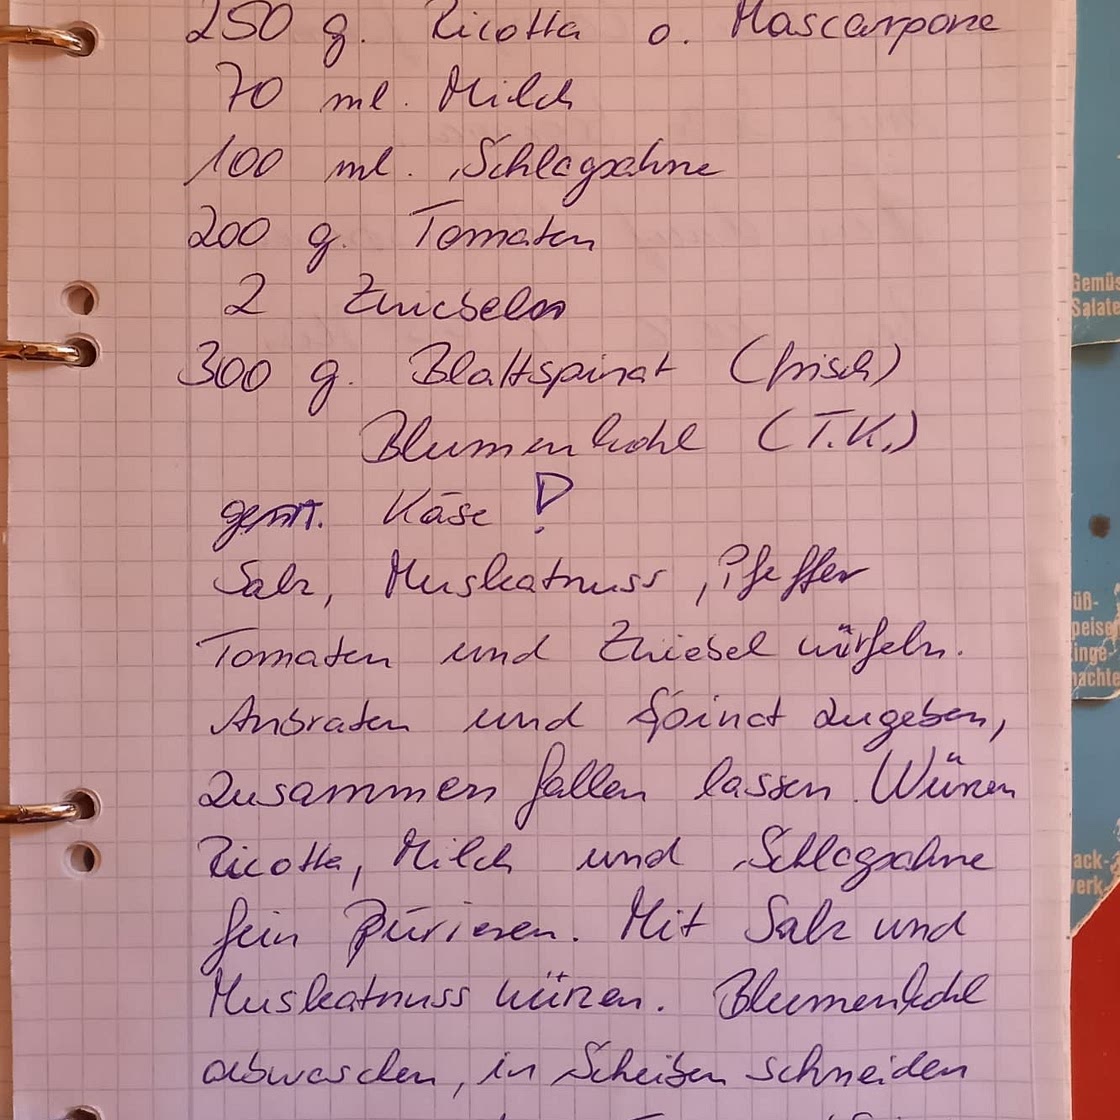 250 g. Ricotta o. Mascarpone
70 ml. Milch
100 ml. Schlagsahne
200 g. Tomaten
2 Zwiebeln
300 g. Blattspinat (frisch)
Blumenkohl (T.K.)
Käse !
Salz, Muskatnuss, Pfeffer
Tomaten und Zwiebel würfeln.
Anbraten und Spinat zugeben,
zusammen fallen lassen. Würzen
Ricotta, Milch und Schlagsahne
fein Pürieren. Mit Salz und
Muskatnuss würzen. Blumenkohl
abwaschen, in Scheiben schneiden
Gemüs
Salate
üß-
peise
inge-
achte
ack-
erk-